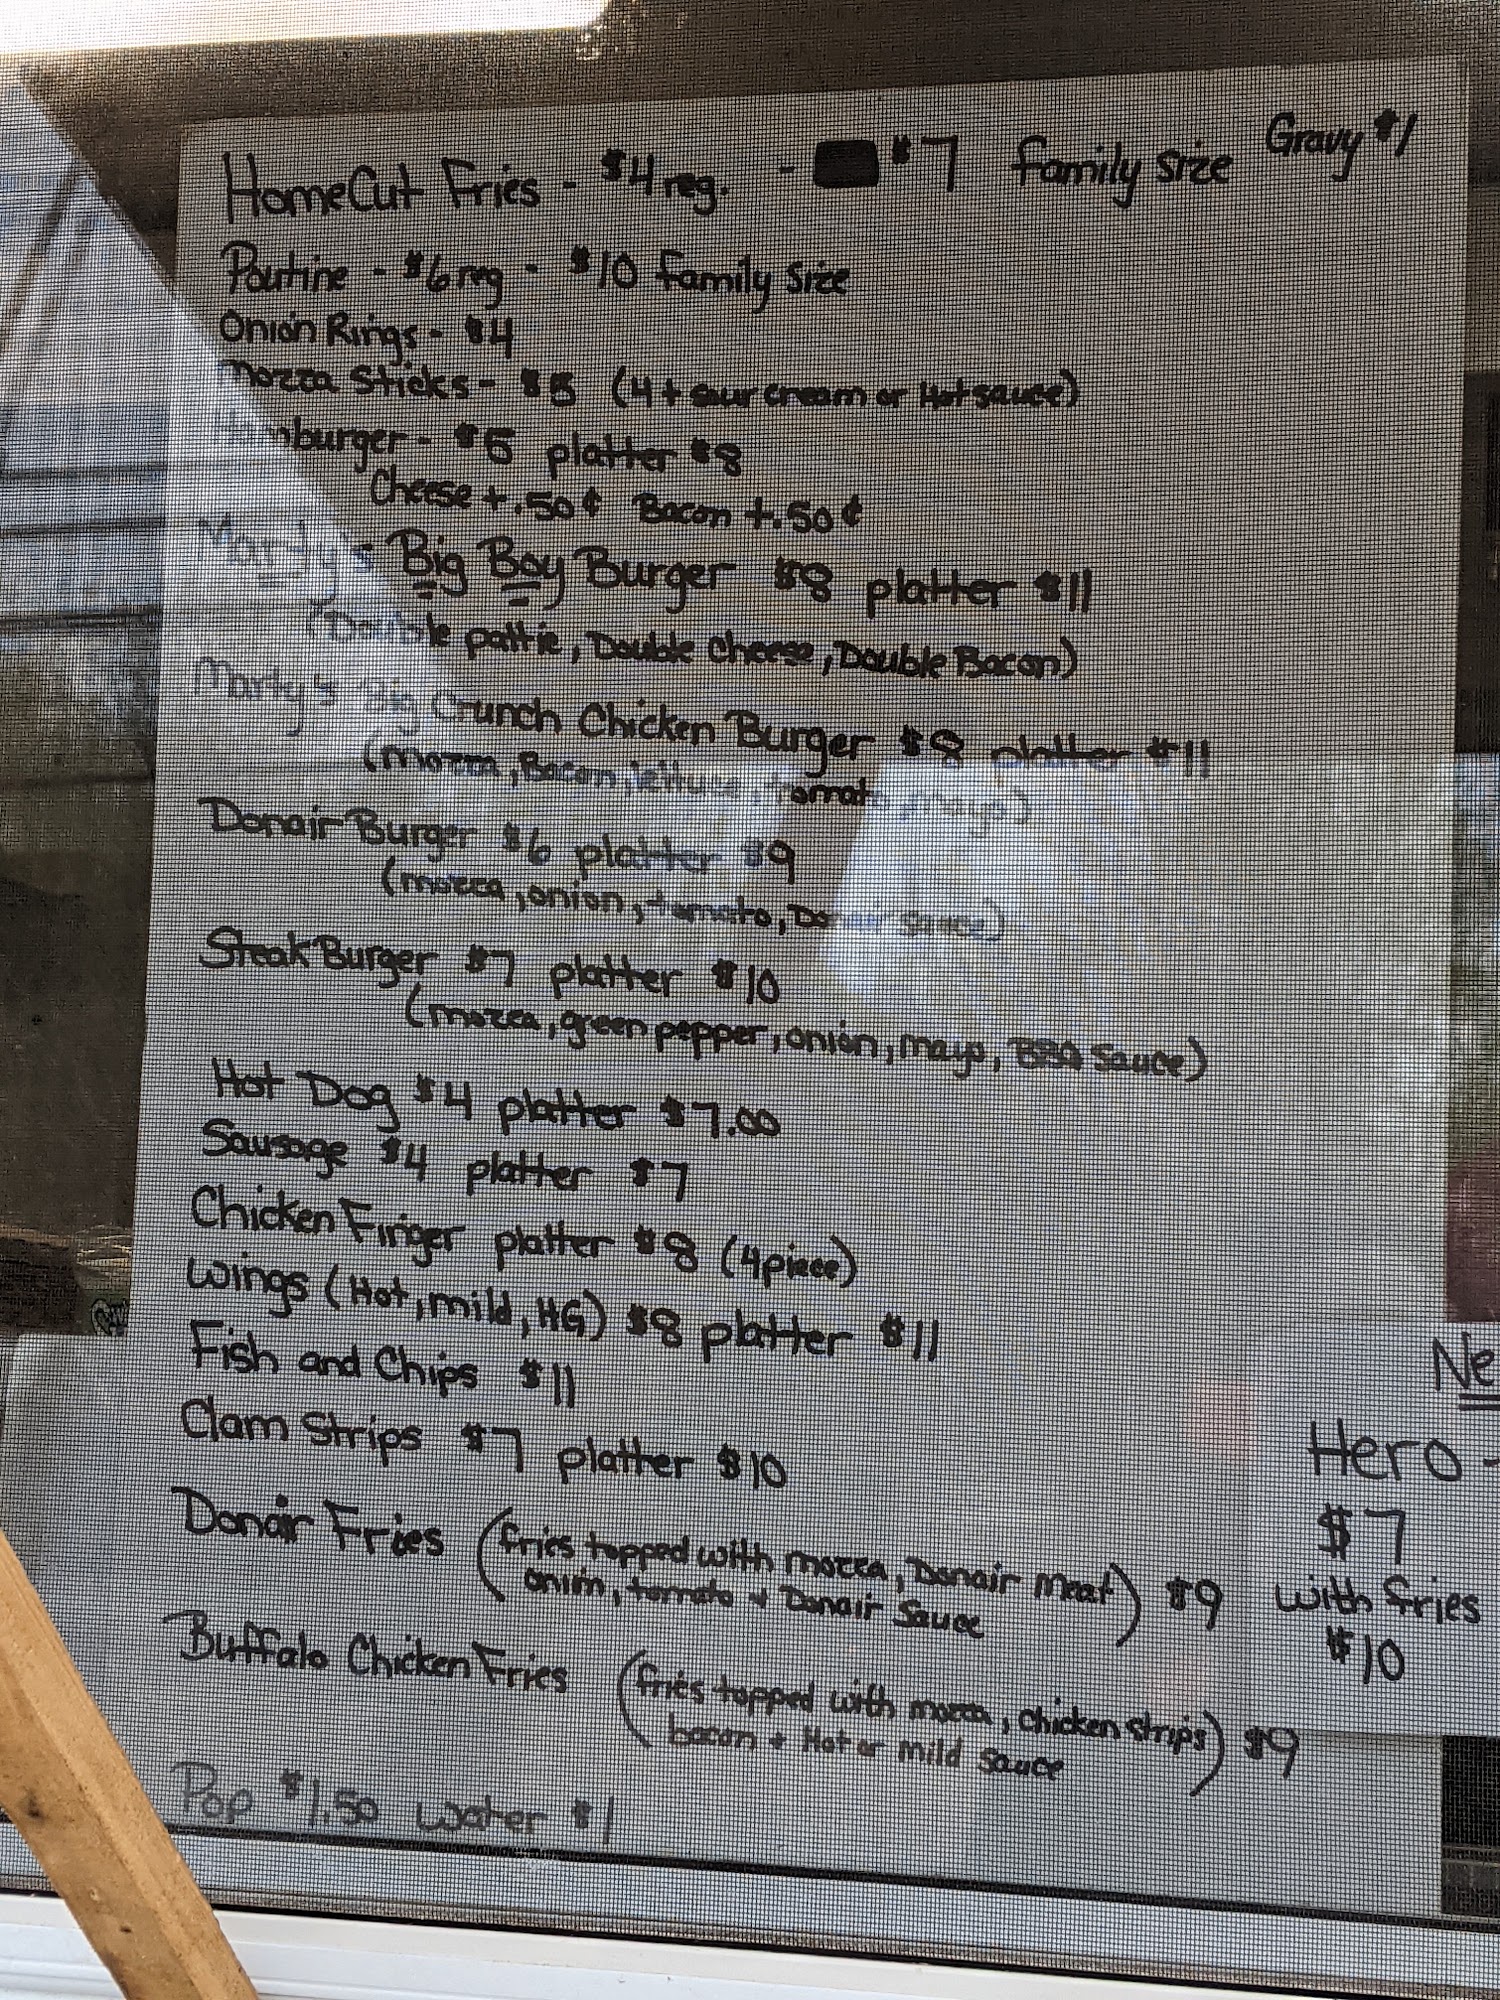 HomeCut Fries - $4 reg. - $7 family size Gravy $1
Poutine - $6 reg - $10 family size
Onion Rings - $4
Mozza Sticks - $5 (4 + sour cream or Hot sauce)
Hamburger - $5 platter $8
Cheese +.50¢ Bacon +.50¢
Marty's Big Boy Burger $8 platter $11
(Double pattie, Double cheese, Double Bacon)
Marty's Big Crunch Chicken Burger $8 platter $11
(mozza, Bacon, lettuce, tomato, mayo)
Donair Burger $6 platter $9
(mozza, onion, tomato, Donair sauce)
Steak Burger $7 platter $10
(mozza, green pepper, onion, mayo, BBQ sauce)
Hot Dog $4 platter $7.00
Sausage $4 platter $7
Chicken Finger platter $8 (4 piece)
Wings (Hot, mild, HG) $8 platter $11
Fish and Chips $11
Clam Strips $7 platter $10
Donair Fries (fries topped with mozza, Donair meat) $9
onion, tomato + Donair Sauce
Buffalo Chicken Fries (fries topped with mozza, chicken strips) $9
bacon + Hot or mild sauce
Pop $1.50 water $1
Ne
Hero -
$7
with fries
$10